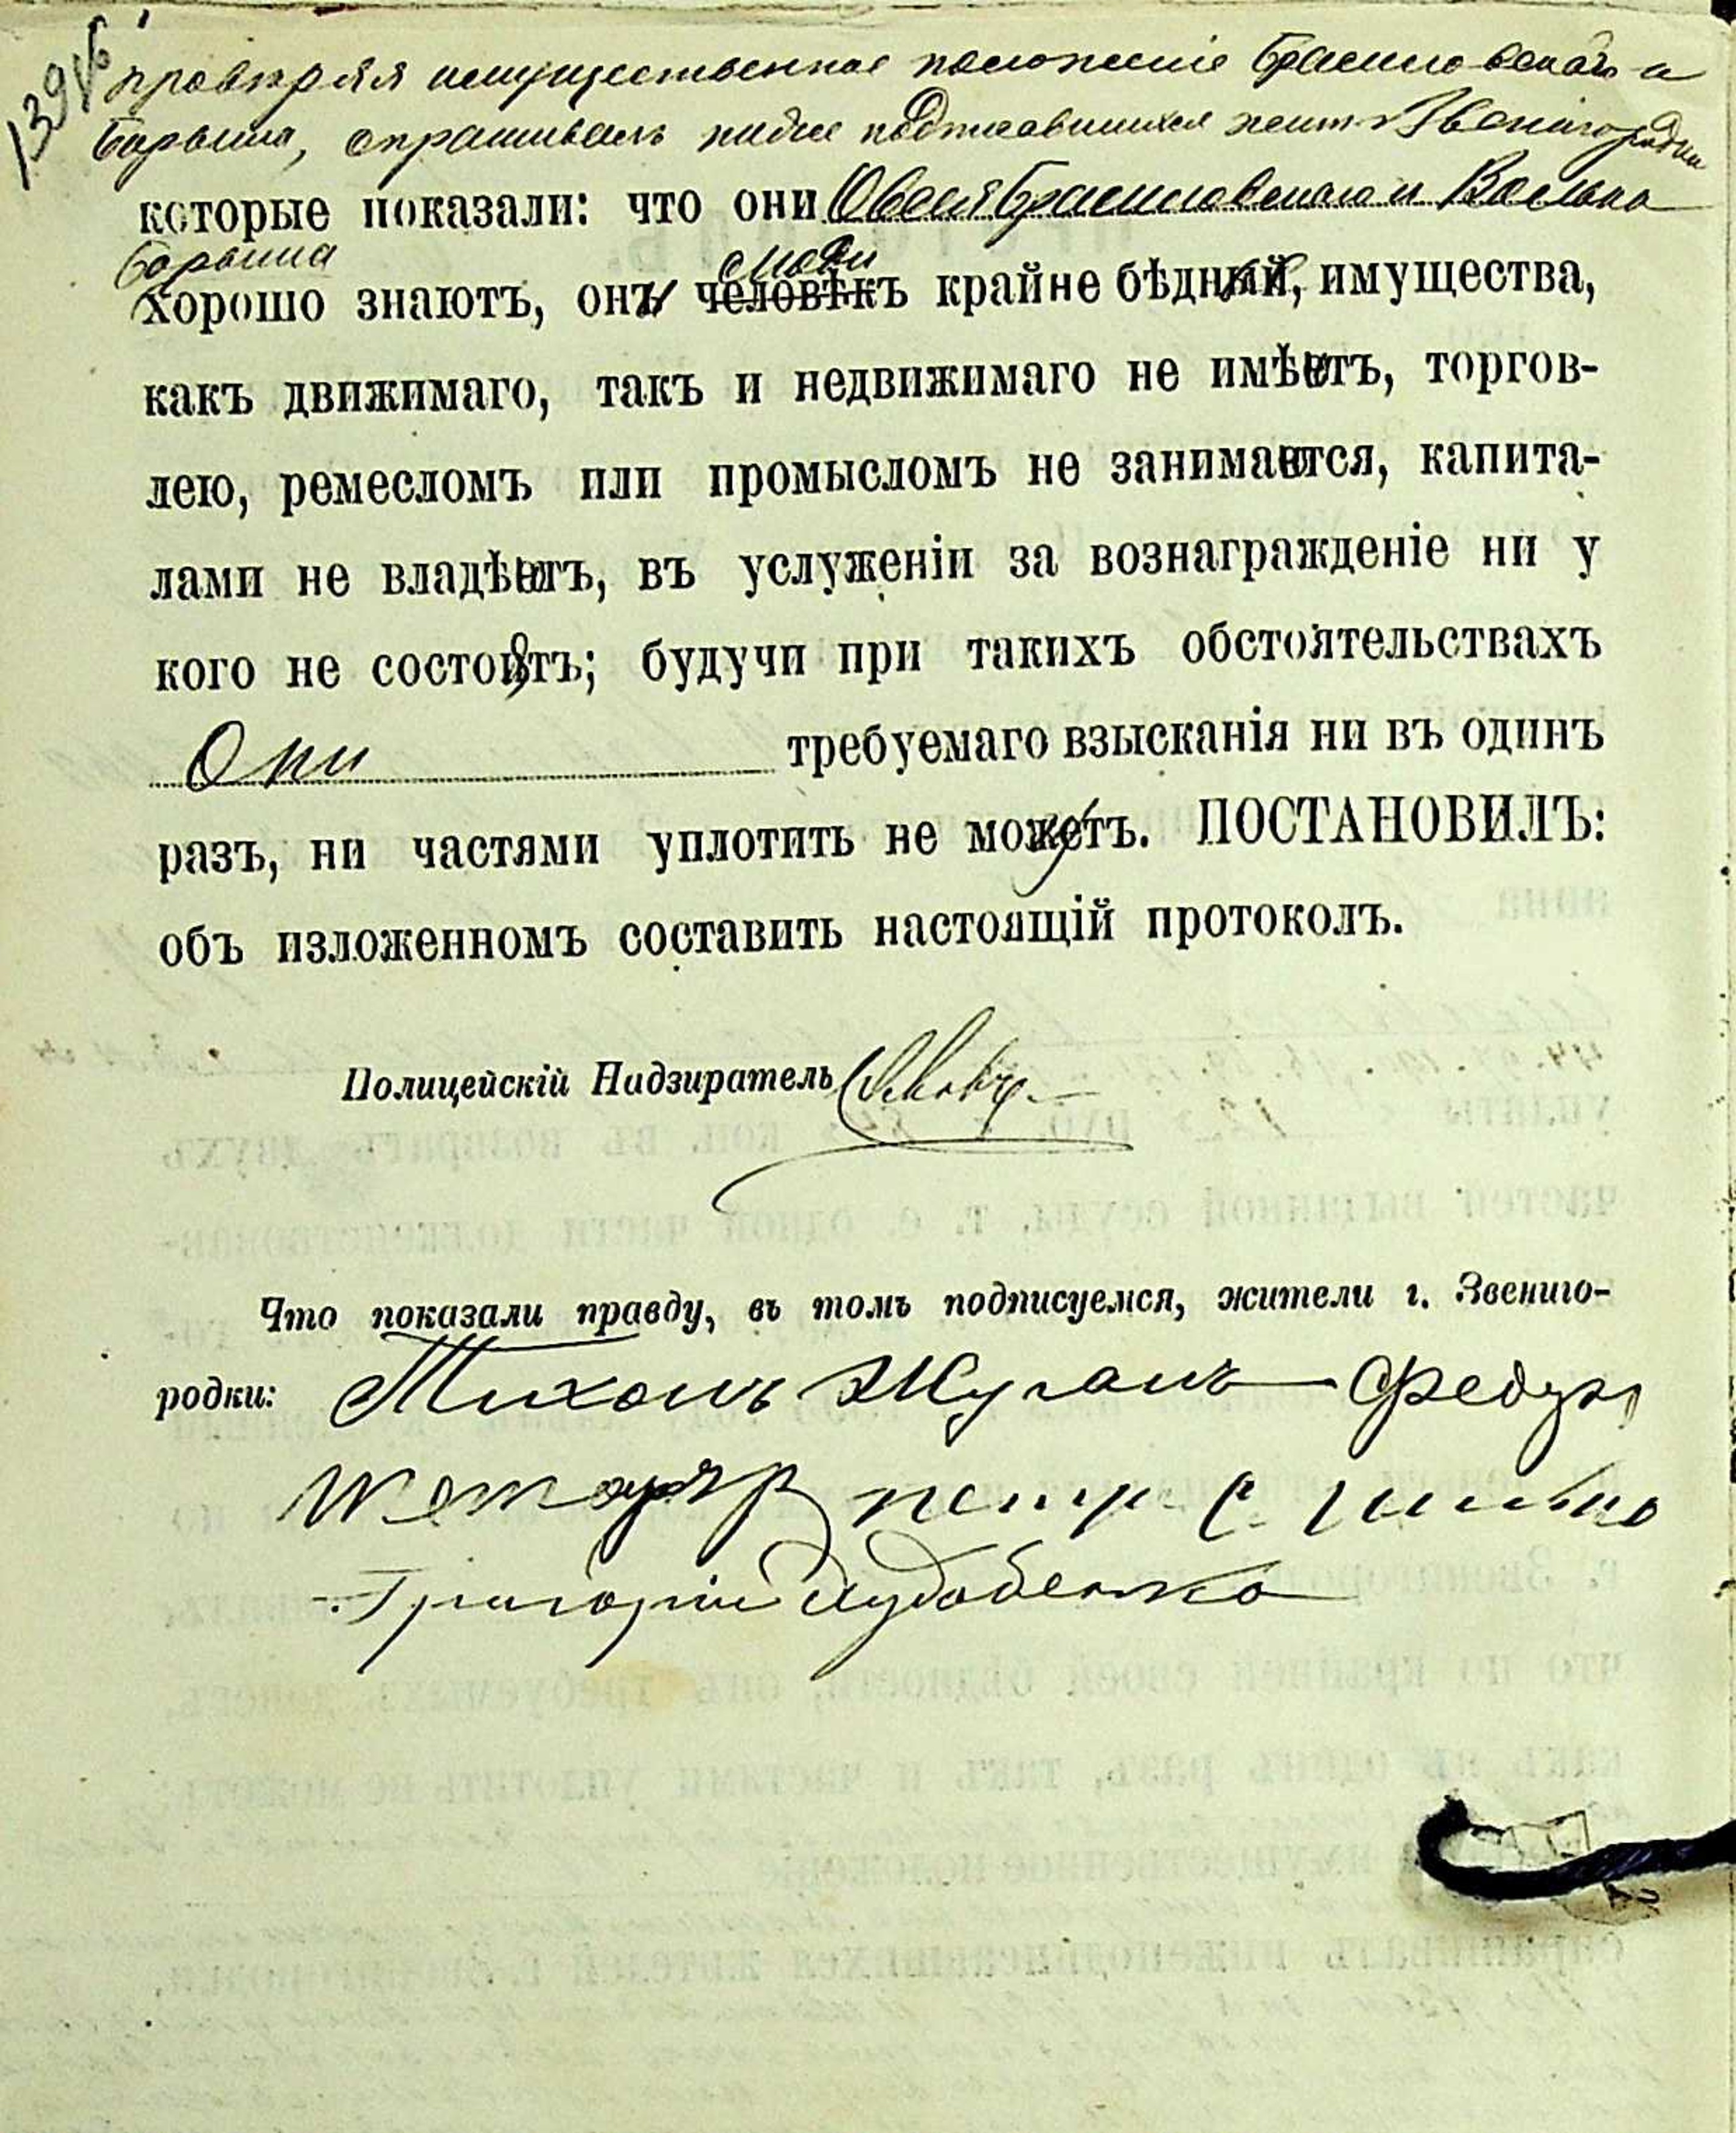 139 об
провѣряя имущественное положеніе Браиловскаго и
Барыша, спрашивалъ ниже подписавшихся жит. г. Звенигородки
которые показали: что они Овсея Браиловскаго и Волька
Барыша люди
хорошо знаютъ, они человѣкъ крайне бѣдные, имущества,
какъ движимаго, такъ и недвижимаго не имѣютъ, торгов-
лею, ремесломъ или промысломъ не занимаются, капита-
лами не владѣютъ, въ услуженіи за вознагражденіе ни у
кого не состоятъ; будучи при такихъ обстоятельствахъ
Они требуемаго взысканія ни въ одинъ
разъ, ни частями уплотить не могутъ. ПОСТАНОВИЛЪ:
объ изложенномъ составить настоящій протоколъ.
Полицейскій Надзиратель
Что показали правду, въ томъ подписуемся, жители г. Звениго-
родки: Тихонъ Жуганъ
Григорій